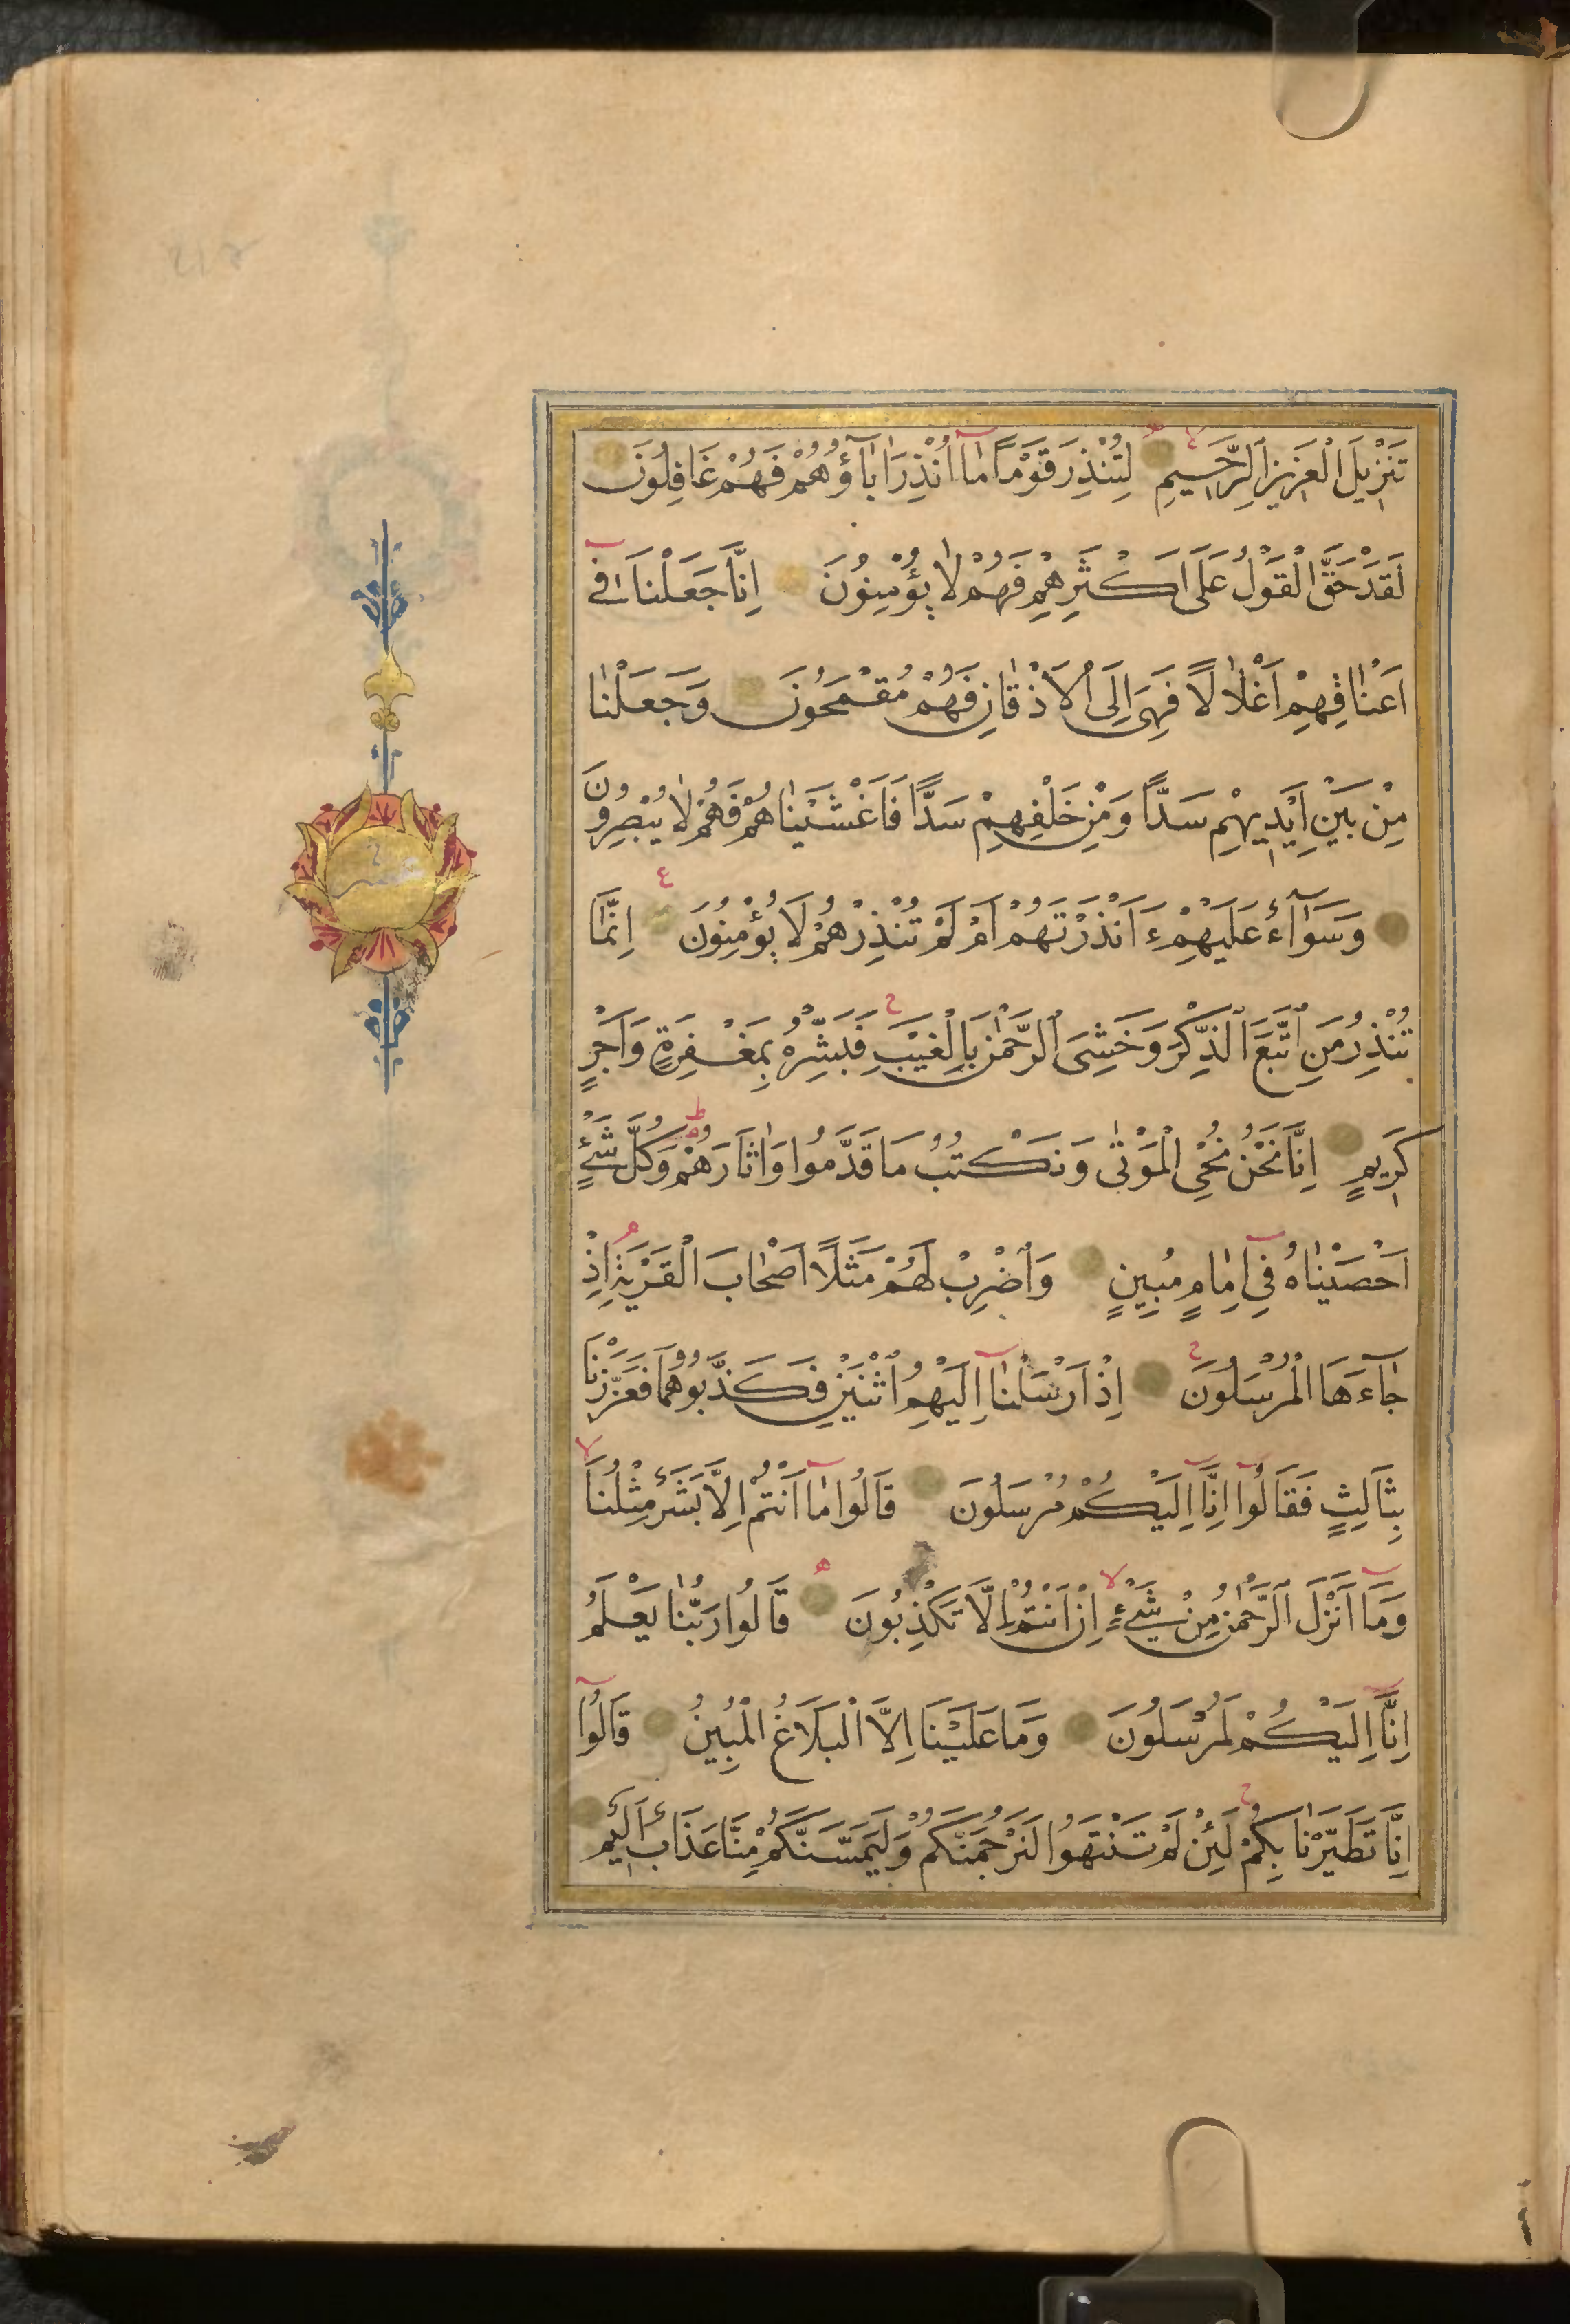 تَنْزِيلَ الْعَزِيزِ الرَّحِيمِ لِتُنْذِرَ قَوْمًا مَا اُنْذِرَ اٰبَاؤُهُمْ فَهُمْ غَافِلُونَ
لَقَدْ حَقَّ الْقَوْلُ عَلٰى اَكْثَرِهِمْ فَهُمْ لَا يُؤْمِنُونَ اِنَّا جَعَلْنَا فِى
اَعْنَاقِهِمْ اَغْلَالًا فَهِىَ اِلَى الْاَذْقَانِ فَهُمْ مُقْمَحُونَ وَجَعَلْنَا
مِنْ بَيْنِ اَيْدِيهِمْ سَدًّا وَمِنْ خَلْفِهِمْ سَدًّا فَاَغْشَيْنَاهُمْ فَهُمْ لَا يُبْصِرُونَ
وَسَوَآءٌ عَلَيْهِمْ ءَاَنْذَرْتَهُمْ اَمْ لَمْ تُنْذِرْهُمْ لَا يُؤْمِنُونَ اِنَّمَا
تُنْذِرُ مَنِ اتَّبَعَ الذِّكْرَ وَخَشِىَ الرَّحْمٰنَ بِالْغَيْبِ فَبَشِّرْهُ بِمَغْفِرَةٍ وَاَجْرٍ
كَرِيمٍ اِنَّا نَحْنُ نُحْىِ الْمَوْتٰى وَنَكْتُبُ مَا قَدَّمُوا وَاٰثَارَهُمْ وَكُلَّ شَىْءٍ
اَحْصَيْنَاهُ فِى اِمَامٍ مُبِينٍ وَاضْرِبْ لَهُمْ مَثَلًا اَصْحَابَ الْقَرْيَةِ اِذْ
جَآءَهَا الْمُرْسَلُونَ اِذْ اَرْسَلْنَا اِلَيْهِمُ اثْنَيْنِ فَكَذَّبُوهُمَا فَعَزَّزْنَا
بِثَالِثٍ فَقَالُوا اِنَّا اِلَيْكُمْ مُرْسَلُونَ قَالُوا مَا اَنْتُمْ اِلَّا بَشَرٌ مِثْلُنَا
وَمَا اَنْزَلَ الرَّحْمٰنُ مِنْ شَىْءٍ اِنْ اَنْتُمْ اِلَّا تَكْذِبُونَ قَالُوا رَبُّنَا يَعْلَمُ
اِنَّا اِلَيْكُمْ لَمُرْسَلُونَ وَمَا عَلَيْنَا اِلَّا الْبَلَاغُ الْمُبِينُ قَالُوا
اِنَّا تَطَيَّرْنَا بِكُمْ لَئِنْ لَمْ تَنْتَهُوا لَنَرْجُمَنَّكُمْ وَلَيَمَسَّنَّكُمْ مِنَّا عَذَابٌ اَلِيمٌ